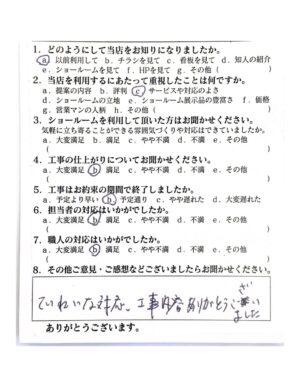 1. どのようにして当店をお知りになりましたか。
a. 以前利用して b. チラシを見て c. 看板を見て d. 知人の紹介
e. ショールームを見て f. HPを見て g. その他 (
2. 当店を利用するにあたって重視したことは何ですか。
a. 提案の内容 b. 評判 c サービスや対応のよさ
d. ショールームの立地 e. ショールーム展示品の豊富さ f. 価格
g. 営業マンの人柄 h. その他 (
3. ショールームを利用して頂いた方はお聞かせください。
気軽に立ち寄ることができる雰囲気づくりや対応はできていましたか。
a. 大変満足 b. 満足 c. やや不満 d. 不満 e. その他
(
4. 工事の仕上がりについてお聞かせください。
a. 大変満足 b. 満足 c. やや不満 d. 不満 e. その他
(
5. 工事はお約束の期間で終了しましたか。
a. 予定より早い b. 予定通り c. やや遅れた d. 大変遅れた
6. 担当者の対応はいかがでしたか。
a. 大変満足 b. 満足 c. やや不満 d. 不満 e. その他
(
7. 職人の対応はいかがでしたか。
a. 大変満足 b. 満足 c. やや不満 d. 不満 e. その他
(
8. その他ご意見・ご感想などございましたらお聞かせください。
ていねいな対応、工事内容ありがとうございました
ありがとうございます。